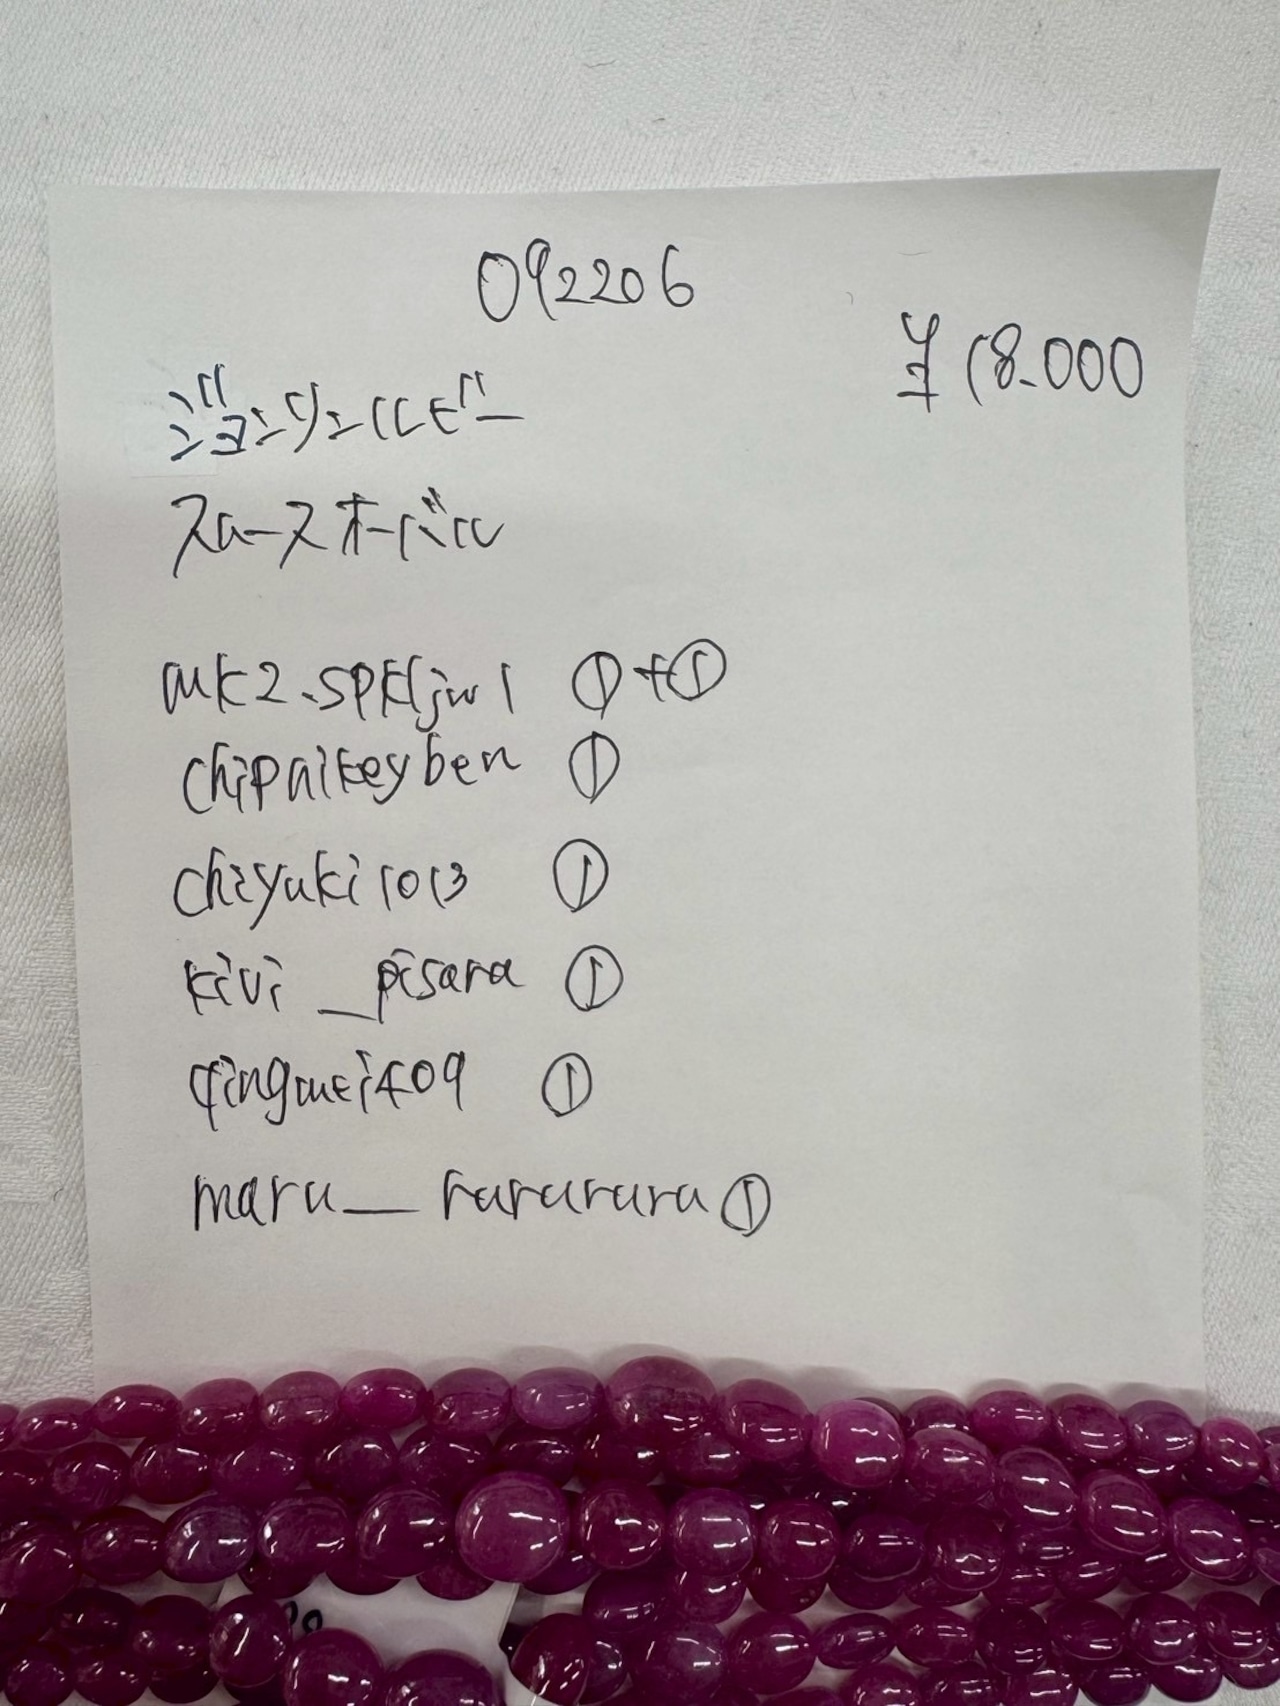 092206
¥18.000
ジョンソンルビー
スムースオーバル
mk2.spkljw1 ①+①
chipaikeyben ①
chiyuki1013 ①
kivi_pisara ①
qingmei409 ①
maru_rurururu ①